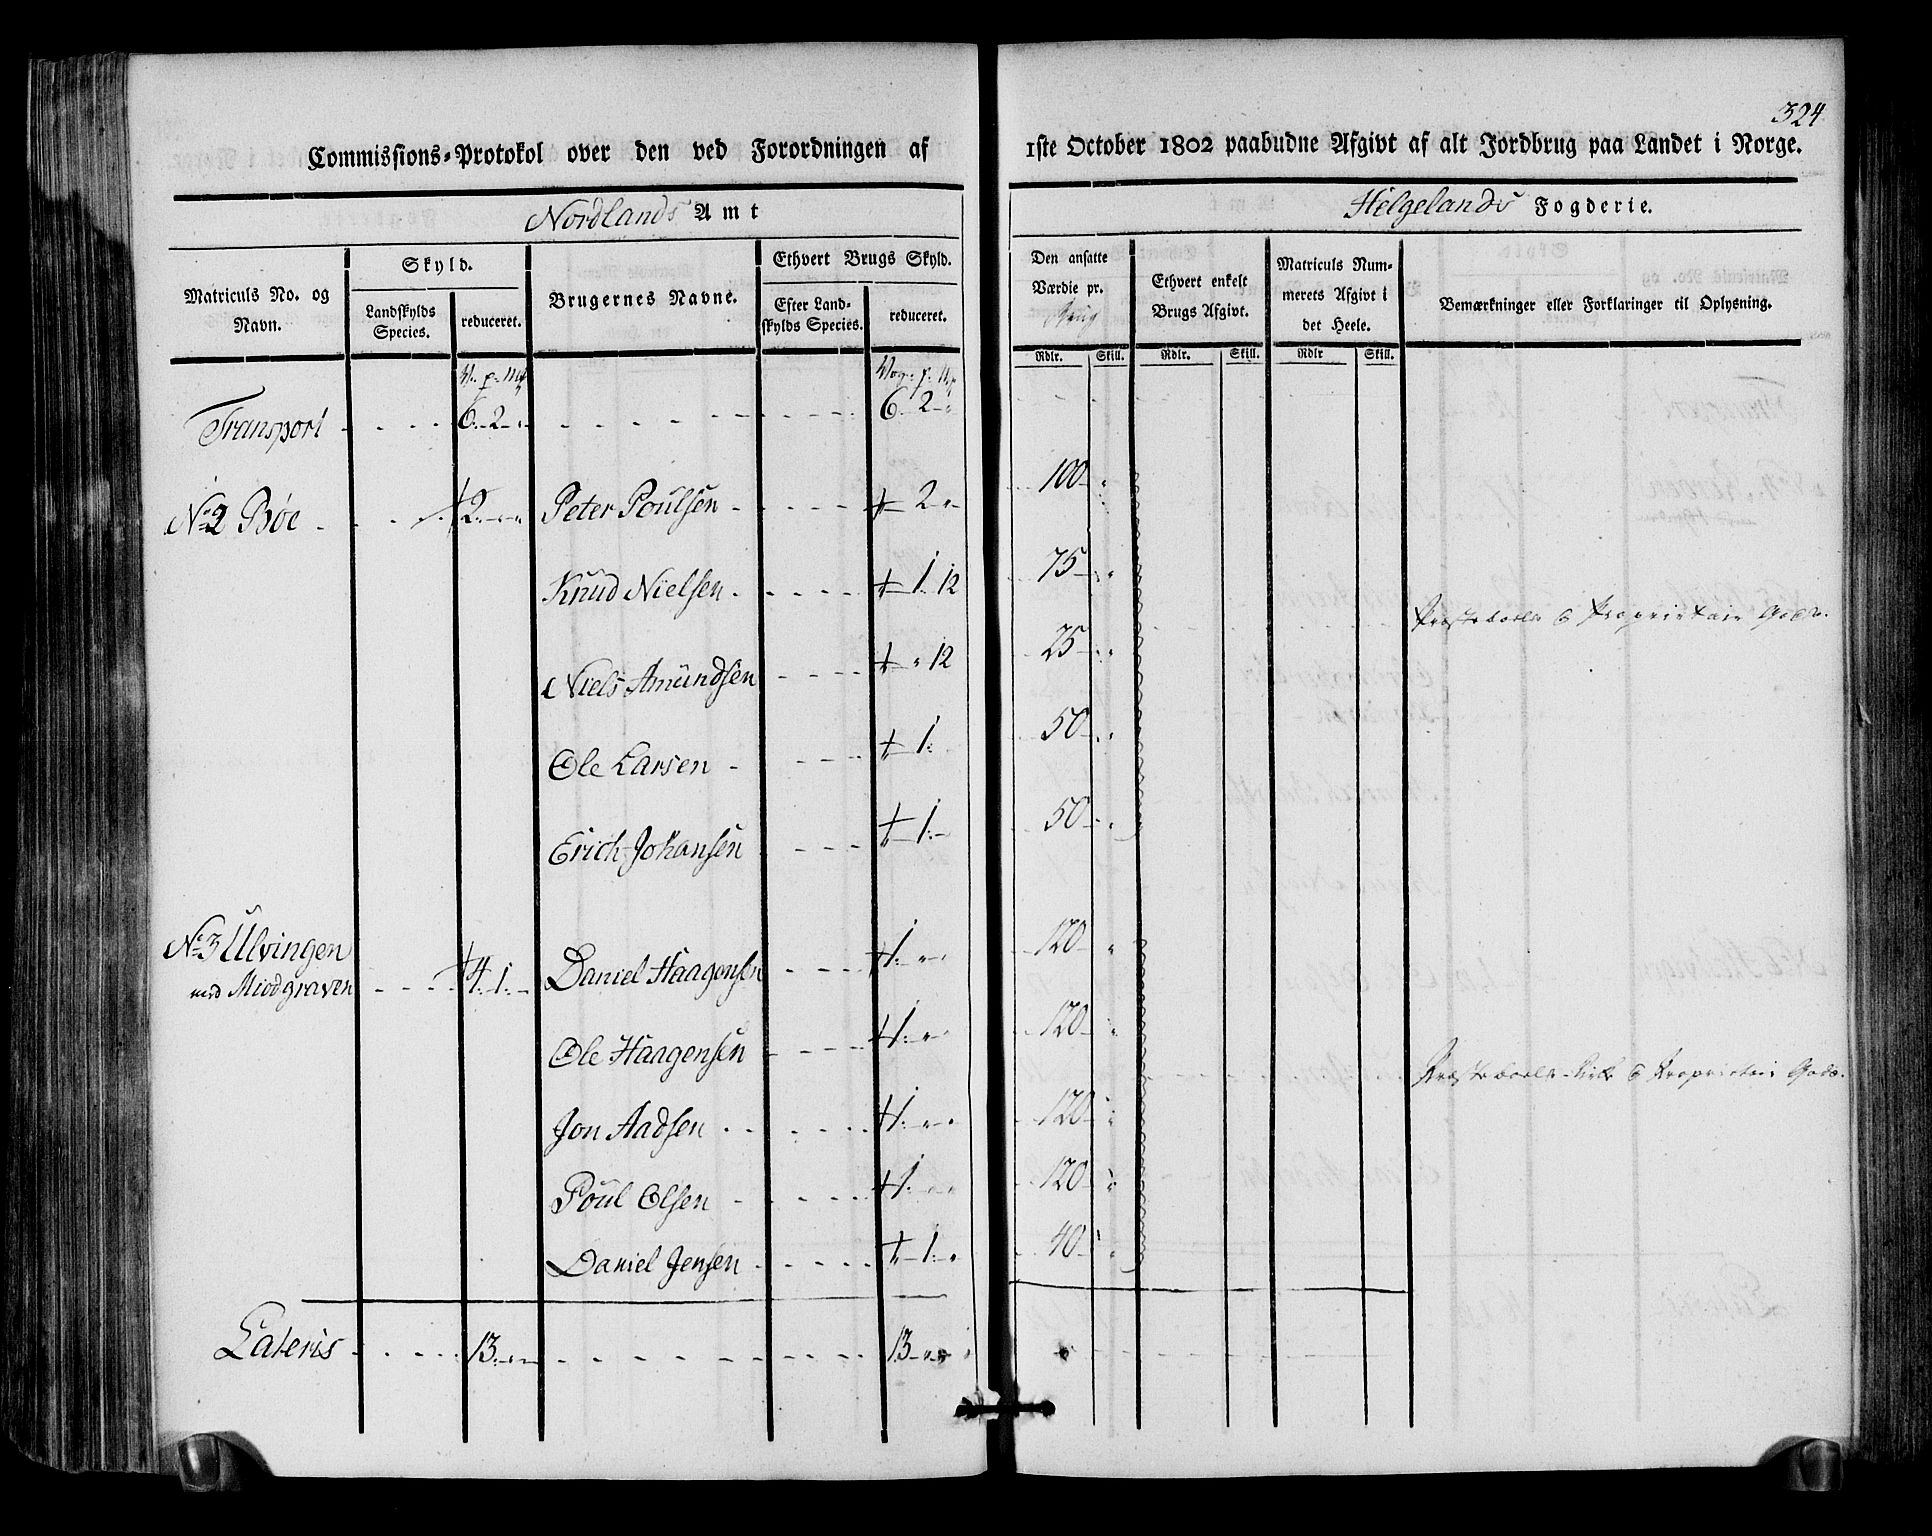 324
Commissions-Protokol over den ved Forordningen af 1ste October 1802 paabudne Afgivt af alt Jordbrug paa Landet i Norge.
Nordlands Amt Helgelands Fogderie.
Matriculs No. og Navn.
Skyld.
Landskylds Species.
reduceret.
Brugernes Navne.
Ethvert Brugs Skyld.
Efter Landskylds Species.
reduceret.
Den ansatte Værdie pr.
Ethvert enkelt Brugs Afgivt.
Matriculs Nummerets Afgivt i det Heele.
Bemærkninger eller Forklaringer til Oplysning.
Rdlr. Skill. Rdlr. Skill. Rdlr Skill.
Transport 6 2 " 6 2 "
No 2 Bøe 2 " " Peter Poulsen 2 " 100 "
Knud Nielsen 1 12 75 "
Præstebols & Proprietair Gods.
Niels Amundsen " 12 25 "
Ole Larsen 1 50 "
Erich Johansen 1 50 "
No 3 Ulvingen 4 1 Daniel Haagensen 1 " " 120 "
med Miodgraven
Ole Haagensen 1 " " 120 "
Præstebols Kirke & Proprietair Gods.
Jon Aadsen 1 " " 120 "
Poul Olsen 1 " " 120 "
Daniel Jensen 1 " 40 "
Lateris 13 " " 13 " "